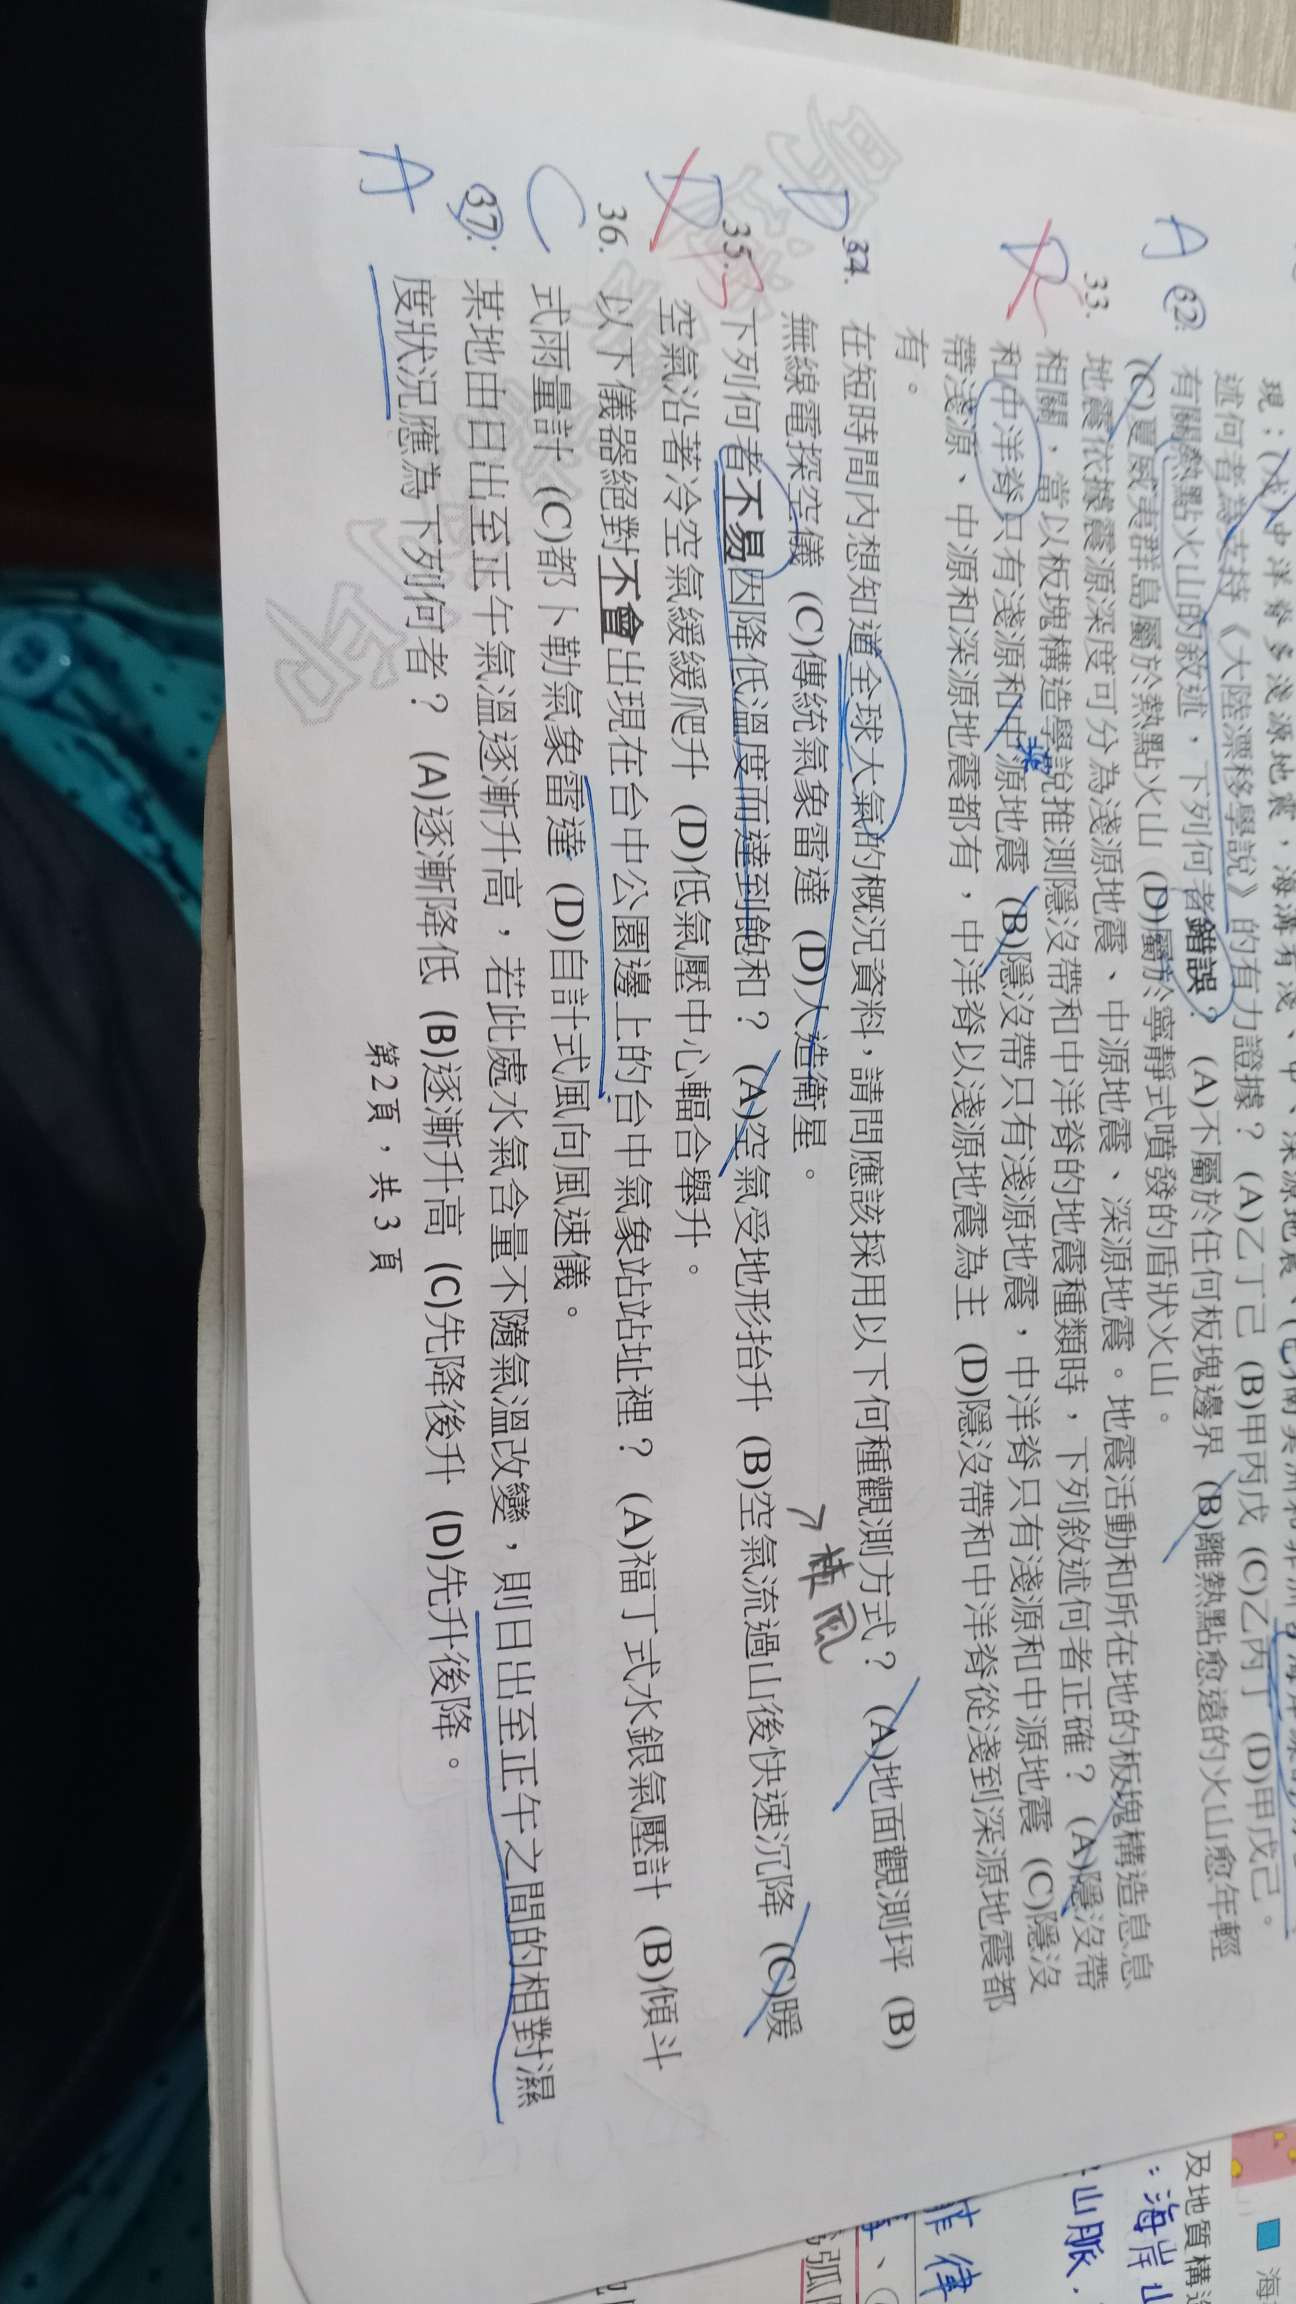 現：(戊)中洋脊多淺源地震，海溝有淺、中、深源地震、
述何者為支持《大陸漂移學說》的有力證據？ (A)乙丁己 (B)甲丙戊 (C)乙丙丁 (D)甲戊己。
A 32. 有關熱點火山的敘述，下列何者錯誤？ (A)不屬於任何板塊邊界 (B)離熱點愈遠的火山愈年輕
(C)夏威夷群島屬於熱點火山 (D)屬於寧靜式噴發的盾狀火山。
D C 33. 地震依據震源深度可分為淺源地震、中源地震、深源地震。地震活動和所在地的板塊構造息息
相關，當以板塊構造學說推測隱沒帶和中洋脊的地震種類時，下列敘述何者正確？ (A)隱沒帶
和中洋脊只有淺源和中源地震 (B)隱沒帶只有淺源地震，中洋脊只有淺源和中源地震 (C)隱沒
帶淺源、中源和深源地震都有，中洋脊以淺源地震為主 (D)隱沒帶和中洋脊從淺到深源地震都
有。
D 34. 在短時間內想知道全球大氣的概況資料，請問應該採用以下何種觀測方式？ (A)地面觀測坪 (B)
無線電探空儀 (C)傳統氣象雷達 (D)人造衛星。
焚風
D B 35. 下列何者不易因降低溫度而達到飽和？ (A)空氣受地形抬升 (B)空氣流過山後快速沉降 (C)暖
空氣沿著冷空氣緩緩爬升 (D)低氣壓中心輻合舉升。
C 36. 以下儀器絕對不會出現在台中公園邊上的台中氣象站站址裡？ (A)福丁式水銀氣壓計 (B)傾斗
式雨量計 (C)都卜勒氣象雷達 (D)自計式風向風速儀。
A 37. 某地由日出至正午氣溫逐漸升高，若此處水氣含量不隨氣溫改變，則日出至正午之間的相對濕
度狀況應為下列何者？ (A)逐漸降低 (B)逐漸升高 (C)先降後升 (D)先升後降。
第2頁，共3頁
及地質構造
：海岸山
山脈
菲律
弧
海